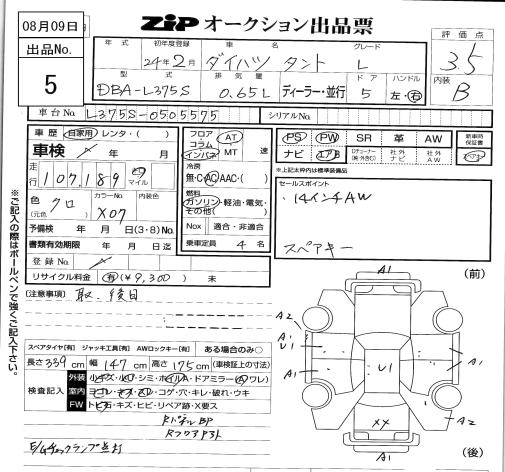 08月09日
ZIP オークション出品票
出品No.
5
年式 初年度登録 車名 グレード
24年2月 ダイハツ タント L
型式 排気量 ドア ハンドル
DBA-L375S 0.65L ディーラー・並行 5 左・右
評価点
3.5
内装
B
車台No. L375S-0505575 シリアルNo.
車歴 自家用・レンタ・( )
車検 年 月
走行 107,189 km マイル
色 クロ カラーNo. X07 内装色
(元色)
予備検 年 月 日(3・8)No.
書類有効期限 年 月 日迄
登録No.
リサイクル料金 有(¥9,300) 未
フロア AT
コラム
インパネ MT 速
冷房
無・C・AC・AAC・( )
燃料
ガソリン・軽油・電気・
その他( )
Nox 適合・非適合
乗車定員 4 名
PS PW SR 革 AW
ナビ エアB 社外ナビ 社外AW
新車時保証書
*上記太枠内は標準装備品
セールスポイント
・14インチAW
スペアキー
[注意事項] 取、後日
スペアタイヤ[有] ジャッキ工具[有] AWロックキー[有] ある場合のみ○
長さ 339 cm 幅 147 cm 高さ 175 cm (車検証上の寸法)
検査記入
外装 小キズ・小凹・シミ・ホイルA・ドアミラー(A ワレ)
室内 ヨゴレ・キズ・スレ・コゲ・穴・キレ・破れ・ウキ
FW トビ石・キズ・ヒビ・リペア跡・X要ス
RパネルBP
E/Gチェックランプ点灯
※ご記入の際はボールペンで強くご記入下さい。
(前)
A1
A2
A1
U1
A1
U1
A1
A2
XX
A1
(後)